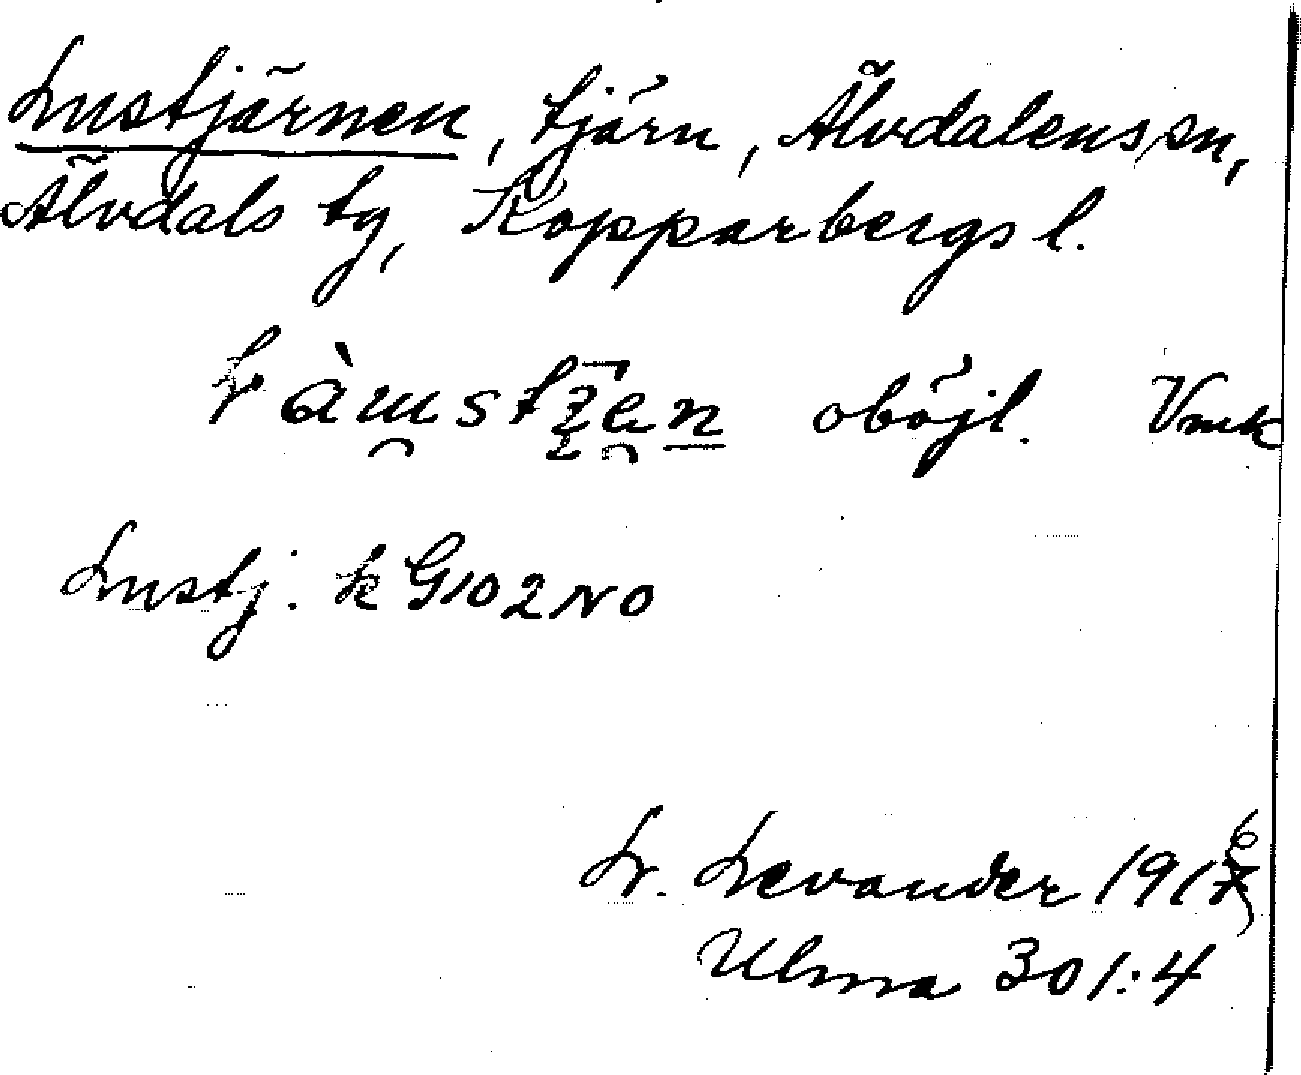 Lustjärnen, tjärn, Älvdalens sn,
Älvdals tg, Kopparbergs l.
oböjl. Vmk
Lustj. k G 102 NO
L. Levander 1916
Ulma 301:4